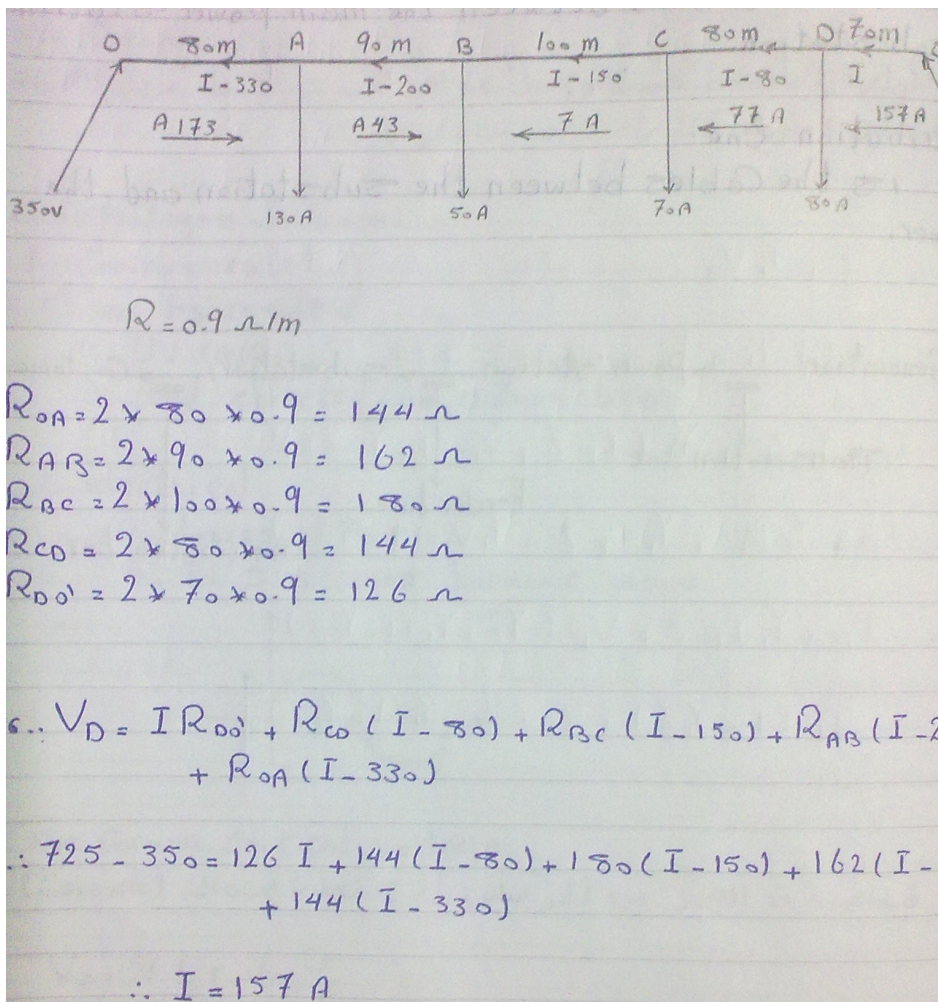 O 80m A 90m B 100m C 80m D 70m
I-330 I-200 I-150 I-80 I
A 173 A 43 7 A 77 A 157 A
350v 130A 50A 70A 80A
R = 0.9 Ω/m
R_OA = 2 * 80 * 0.9 = 144 Ω
R_AB = 2 * 90 * 0.9 = 162 Ω
R_BC = 2 * 100 * 0.9 = 180 Ω
R_CD = 2 * 80 * 0.9 = 144 Ω
R_DO' = 2 * 70 * 0.9 = 126 Ω
V_D = I R_DO' + R_CD (I - 80) + R_BC (I - 150) + R_AB (I - 2
+ R_OA (I - 330)
∴ 725 - 350 = 126 I + 144 (I - 80) + 180 (I - 150) + 162 (I -
+ 144 (I - 330)
∴ I = 157 A